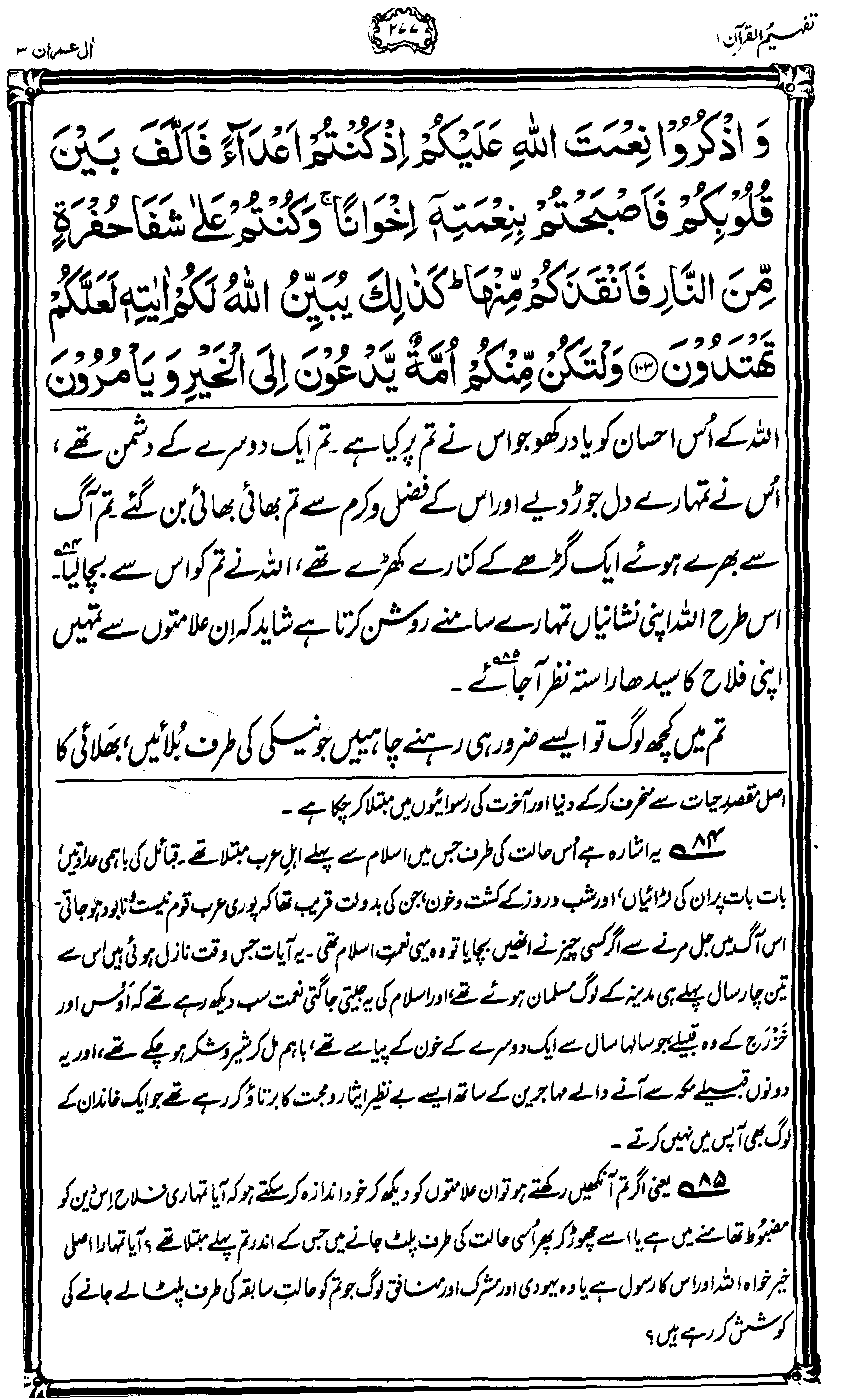 تفہیم القرآن ۱
۲۷۷
اٰل عمران ۳
وَ اذْكُرُوْا نِعْمَتَ اللّٰهِ عَلَيْكُمْ اِذْ كُنْتُمْ اَعْدَآءً فَاَلَّفَ بَيْنَ
قُلُوْبِكُمْ فَاَصْبَحْتُمْ بِنِعْمَتِهٖۤ اِخْوَانًا ۚ وَكُنْتُمْ عَلٰى شَفَا حُفْرَةٍ
مِّنَ النَّارِ فَاَنْقَذَكُمْ مِّنْهَا ؕ كَذٰلِكَ يُبَيِّنُ اللّٰهُ لَكُمْ اٰيٰتِهٖ لَعَلَّكُمْ
تَهْتَدُوْنَ ۝۱۰۳ وَلْتَكُنْ مِّنْكُمْ اُمَّةٌ يَّدْعُوْنَ اِلَى الْخَيْرِ وَ يَاْمُرُوْنَ
اللہ کے اُس احسان کو یاد رکھو جو اس نے تم پر کیا ہے۔ تم ایک دوسرے کے دشمن تھے،
اُس نے تمہارے دل جوڑ دیے اور اس کے فضل و کرم سے تم بھائی بھائی بن گئے۔ تم آگ
سے بھرے ہوئے ایک گڑھے کے کنارے کھڑے تھے، اللہ نے تم کو اس سے بچا لیا۸۴۔
اس طرح اللہ اپنی نشانیاں تمہارے سامنے روشن کرتا ہے شاید کہ اِن علامتوں سے تمہیں
اپنی فلاح کا سیدھا راستہ نظر آجائے۸۵۔
تم میں کچھ لوگ تو ایسے ضرور ہی رہنے چاہییں جو نیکی کی طرف بُلائیں، بھَلائی کا
اصل مقصدِ حیات سے منحرف کر کے دنیا اور آخرت کی رسوائیوں میں مبتلا کر چکا ہے۔
۸۴ یہ اشارہ ہے اُس حالت کی طرف جس میں اسلام سے پہلے اہلِ عرب مبتلا تھے۔ قبائل کی باہمی عداوتیں،
بات بات پر ان کی لڑائیاں، اور شب و روز کے کشت و خون، جن کی بدولت قریب تھا کہ پوری عرب قوم نیست و نابود ہو جاتی۔
اس آگ میں جل مرنے سے اگر کسی چیز نے انھیں بچایا تو وہ یہی نعمتِ اسلام تھی۔ یہ آیات جس وقت نازل ہوئی ہیں اس سے
تین چار سال پہلے ہی مدینہ کے لوگ مسلمان ہوئے تھے، اور اسلام کی یہ جیتی جاگتی نعمت سب دیکھ رہے تھے کہ اَوْس اور
خَزْرَج کے وہ قبیلے، جو سالہا سال سے ایک دوسرے کے خون کے پیاسے تھے، باہم مل کر شیر و شکر ہو چکے تھے، اور یہ
دونوں قبیلے مکہ سے آنے والے مہاجرین کے ساتھ ایسے بے نظیر ایثار و محبت کا برتاؤ کر رہے تھے جو ایک خاندان کے
لوگ بھی آپس میں نہیں کرتے۔
۸۵ یعنی اگر تم آنکھیں رکھتے ہو تو ان علامتوں کو دیکھ کر خود اندازہ کر سکتے ہو کہ آیا تمہاری فلاح اِس دین کو
مضبُوط تھامنے میں ہے یا اسے چھوڑ کر پھر اُسی حالت کی طرف پلٹ جانے میں جس کے اندر تم پہلے مبتلا تھے؟ آیا تمہارا اصلی
خیر خواہ اللہ اور اس کا رسول ہے یا وہ یہودی اور مشرک اور منافق لوگ جو تم کو حالتِ سابقہ کی طرف پلٹا لے جانے کی
کوشش کر رہے ہیں؟